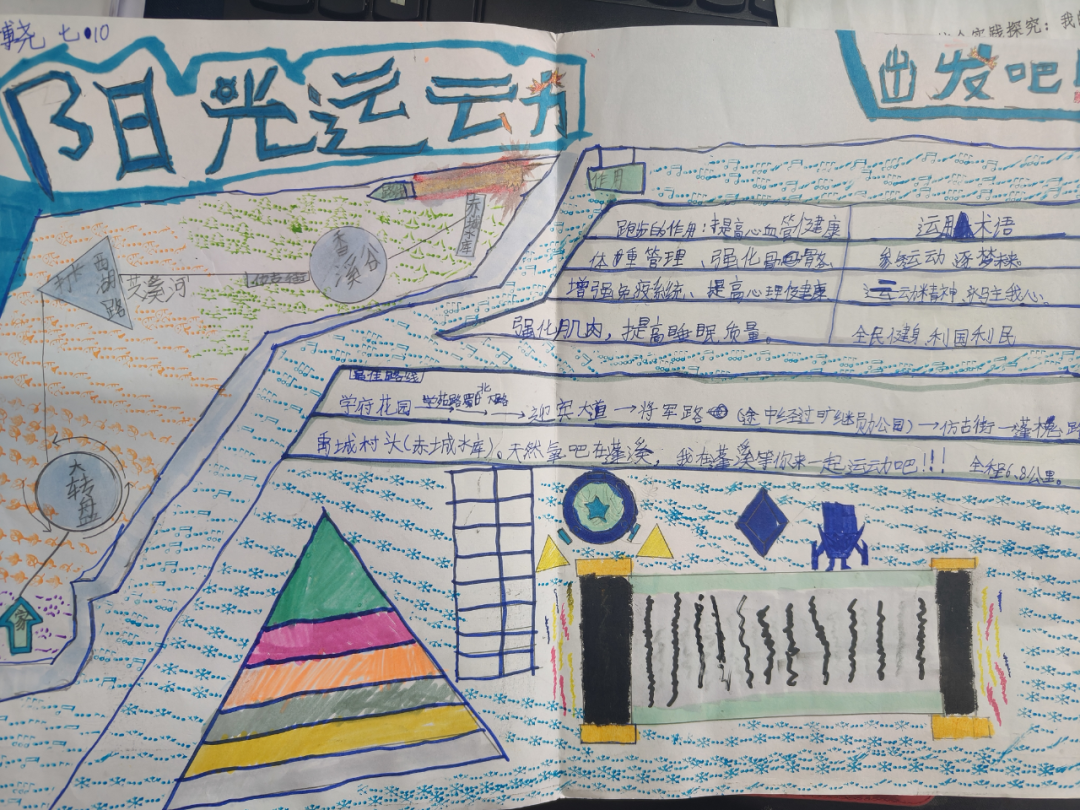 七·10
实践探究：我
阳光运动
出发吧！
作用
跑步的作用：提高心血管健康
体重管理、强化骨骼
增强免疫系统、提高心理健康
强化肌肉，提高睡眠质量。
运动术语
参与运动 逐梦
运动精神
全民健身 利国利民
赤城水库
香溪谷
西湖路
芝溪河
大转盘
家
最佳路线
学府花园→
→迎宾大道→将军路
(途中经过旷继勋公园)→仿古街—蓬槐路
禹城村头(赤城水库)。天然氧吧在蓬溪，我在蓬溪等你来一起运动吧!!! 全程6.8公里。